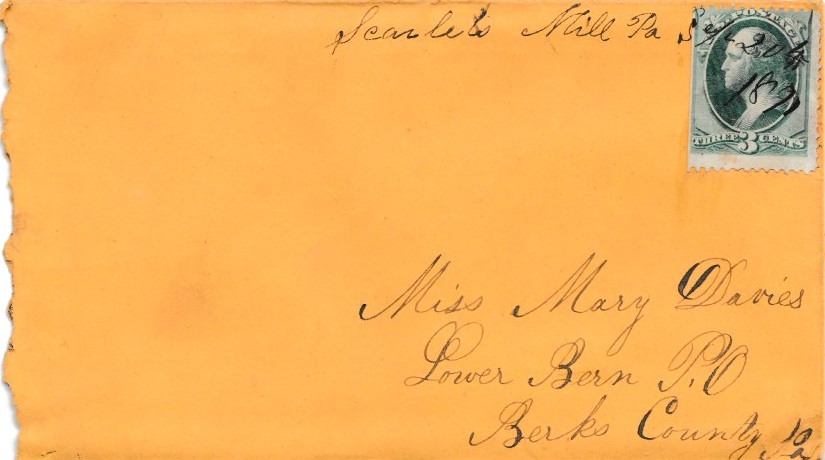 Scarlets Mill Pa Sep 20th
187
THREE 3 CENTS
Miss Mary Davies
Lower Bern P.O
Berks County Pa